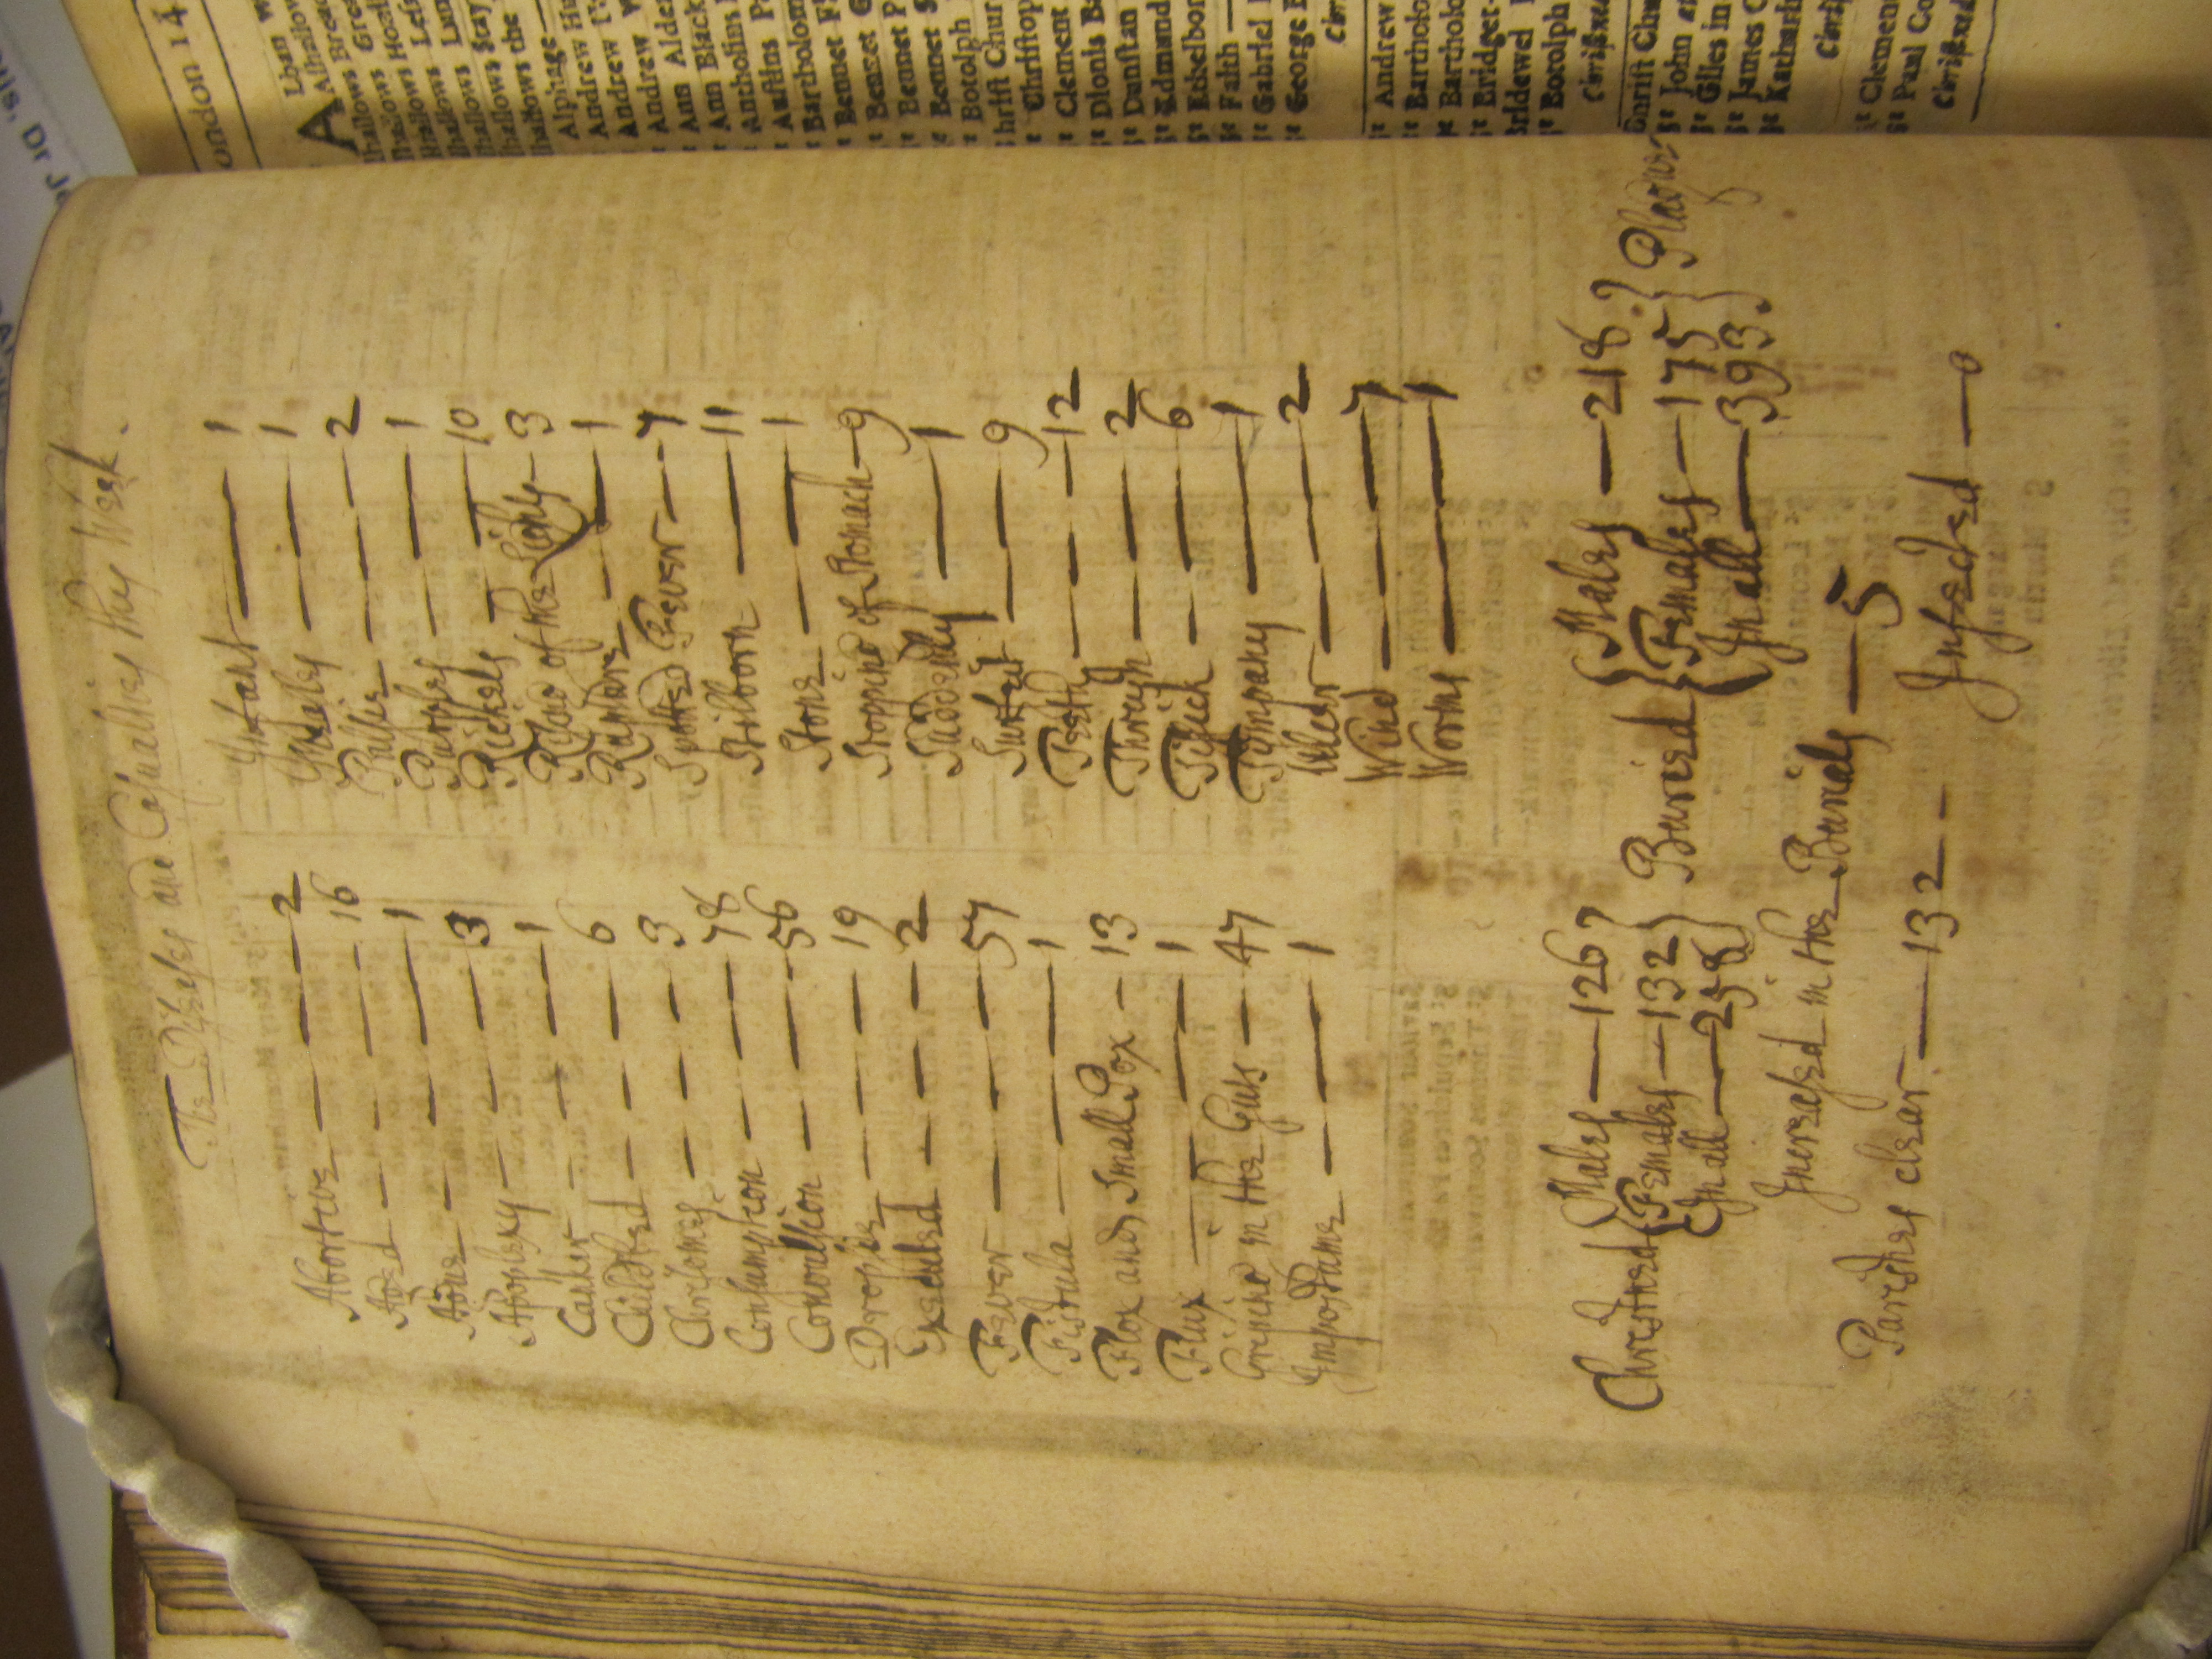 The Diseases and Casualties this Week.
Abortive 2
Aged 16
Ague 1
Apoplexy 3
Canker 1
Childbed 6
Chrisomes 3
Consumption 78
Convulsion 56
Dropsie 19
Executed 2
Feaver 57
Fistula 1
Flox and Small Pox 13
Flux 1
Griping in the Guts 47
Imposthume 1
Infant 1
Measles 1
Palsie 2
Purples 1
Rickets 10
Rising of the Lights 3
Rupture 1
Spotted Feaver 7
Stilborn 11
Stone 1
Stopping of Stomach 9
Suddenly 1
Surfeit 9
Teeth 12
Thrush 2
Tisick 6
Timpany 1
Ulcer 2
Wind 7
Worms 1
Christned { Males 126 Females 132 In all 258 } Buried { Males 218 Females 175 In all 393. } Plague
Increased in the Burials 5
Parishes clear 132 Infected 0
London 14
Alban W
Alhallow
lhallows Grea
lhallows Lun
lhallows Stay
lhallows the
Alphage
Andrew Hu
Andrew
Andrew W
Ann Alder
Ann Black
Antholins P
Austins P
Bartholom
Bennet F
Bennet G
Bennet P
Bennet S
Botolph
hrist Chur
Christop
Clement
Dionis Ba
Dunstan
Edmund
Ethelbor
Faith
Gabriel
George B
Andrew
Bartholo
Bartholo
Bridget
Bridewel
Botolph
Christ Chu
John
Giles in
James C
Katharin
Clemen
Paul Co